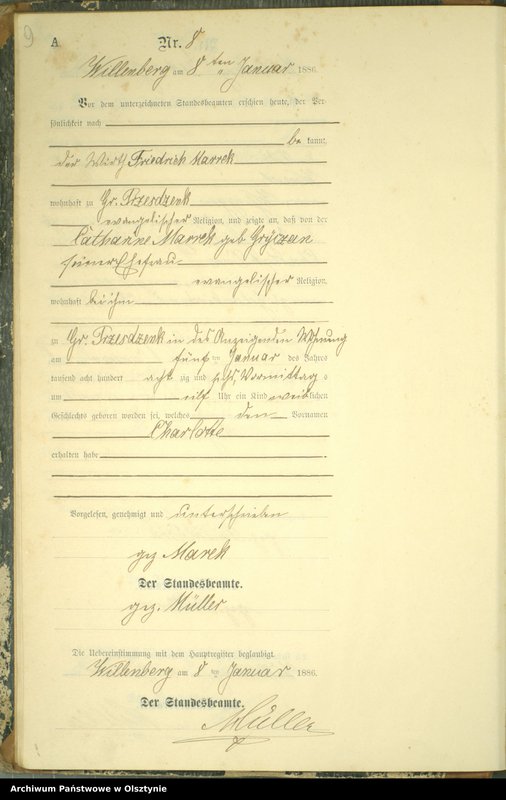 9
A
Nr. 8
Willenberg am 8 ten Januar 1886.
Vor dem unterzeichneten Standesbeamten erschien heute, der Per-
sönlichkeit nach
be kannt,
der Wirth Friedrich Marrek
wohnhaft zu Gr. Przesdzenk
evangelischer Religion, und zeigte an, daß von der
Catharine Marrek geb Gryczan
seiner Ehefrau
evangelischer Religion,
wohnhaft bei ihm
zu Gr. Przesdzenk in des Anzeigenden Wohnung
am fünf ten Januar des Jahres
tausend acht hundert acht zig und sechs, Vormittag s
um eilf Uhr ein Kind weib lichen
Geschlechts geboren worden sei, welches den Vornamen
Charlotte
erhalten habe
Vorgelesen, genehmigt und unterschrieben
gez Marek
Der Standesbeamte.
gez. Müller
Die Uebereinstimmung mit dem Hauptregister beglaubigt.
Willenberg am 8 ten Januar 1886.
Der Standesbeamte.
Müller
Archiwum Państwowe w Olsztynie